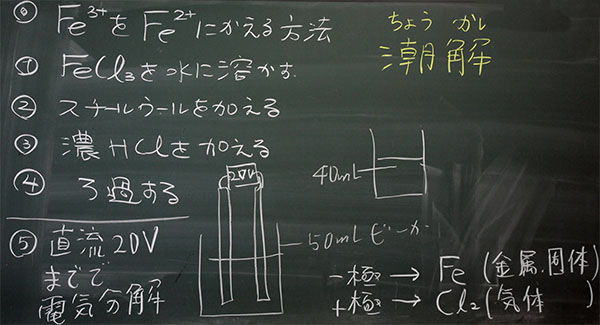 ⓪ Fe³⁺をFe²⁺にかえる方法
① FeCl₃を水に溶かす
② スチールウールを加える
③ 濃HClを加える
④ ろ過する
⑤ 直流20V
までで
電気分解
ちょう かい
潮解
20V
40mL
50mLビーカー
−極 → Fe (金属.固体)
+極 → Cl₂ (気体)